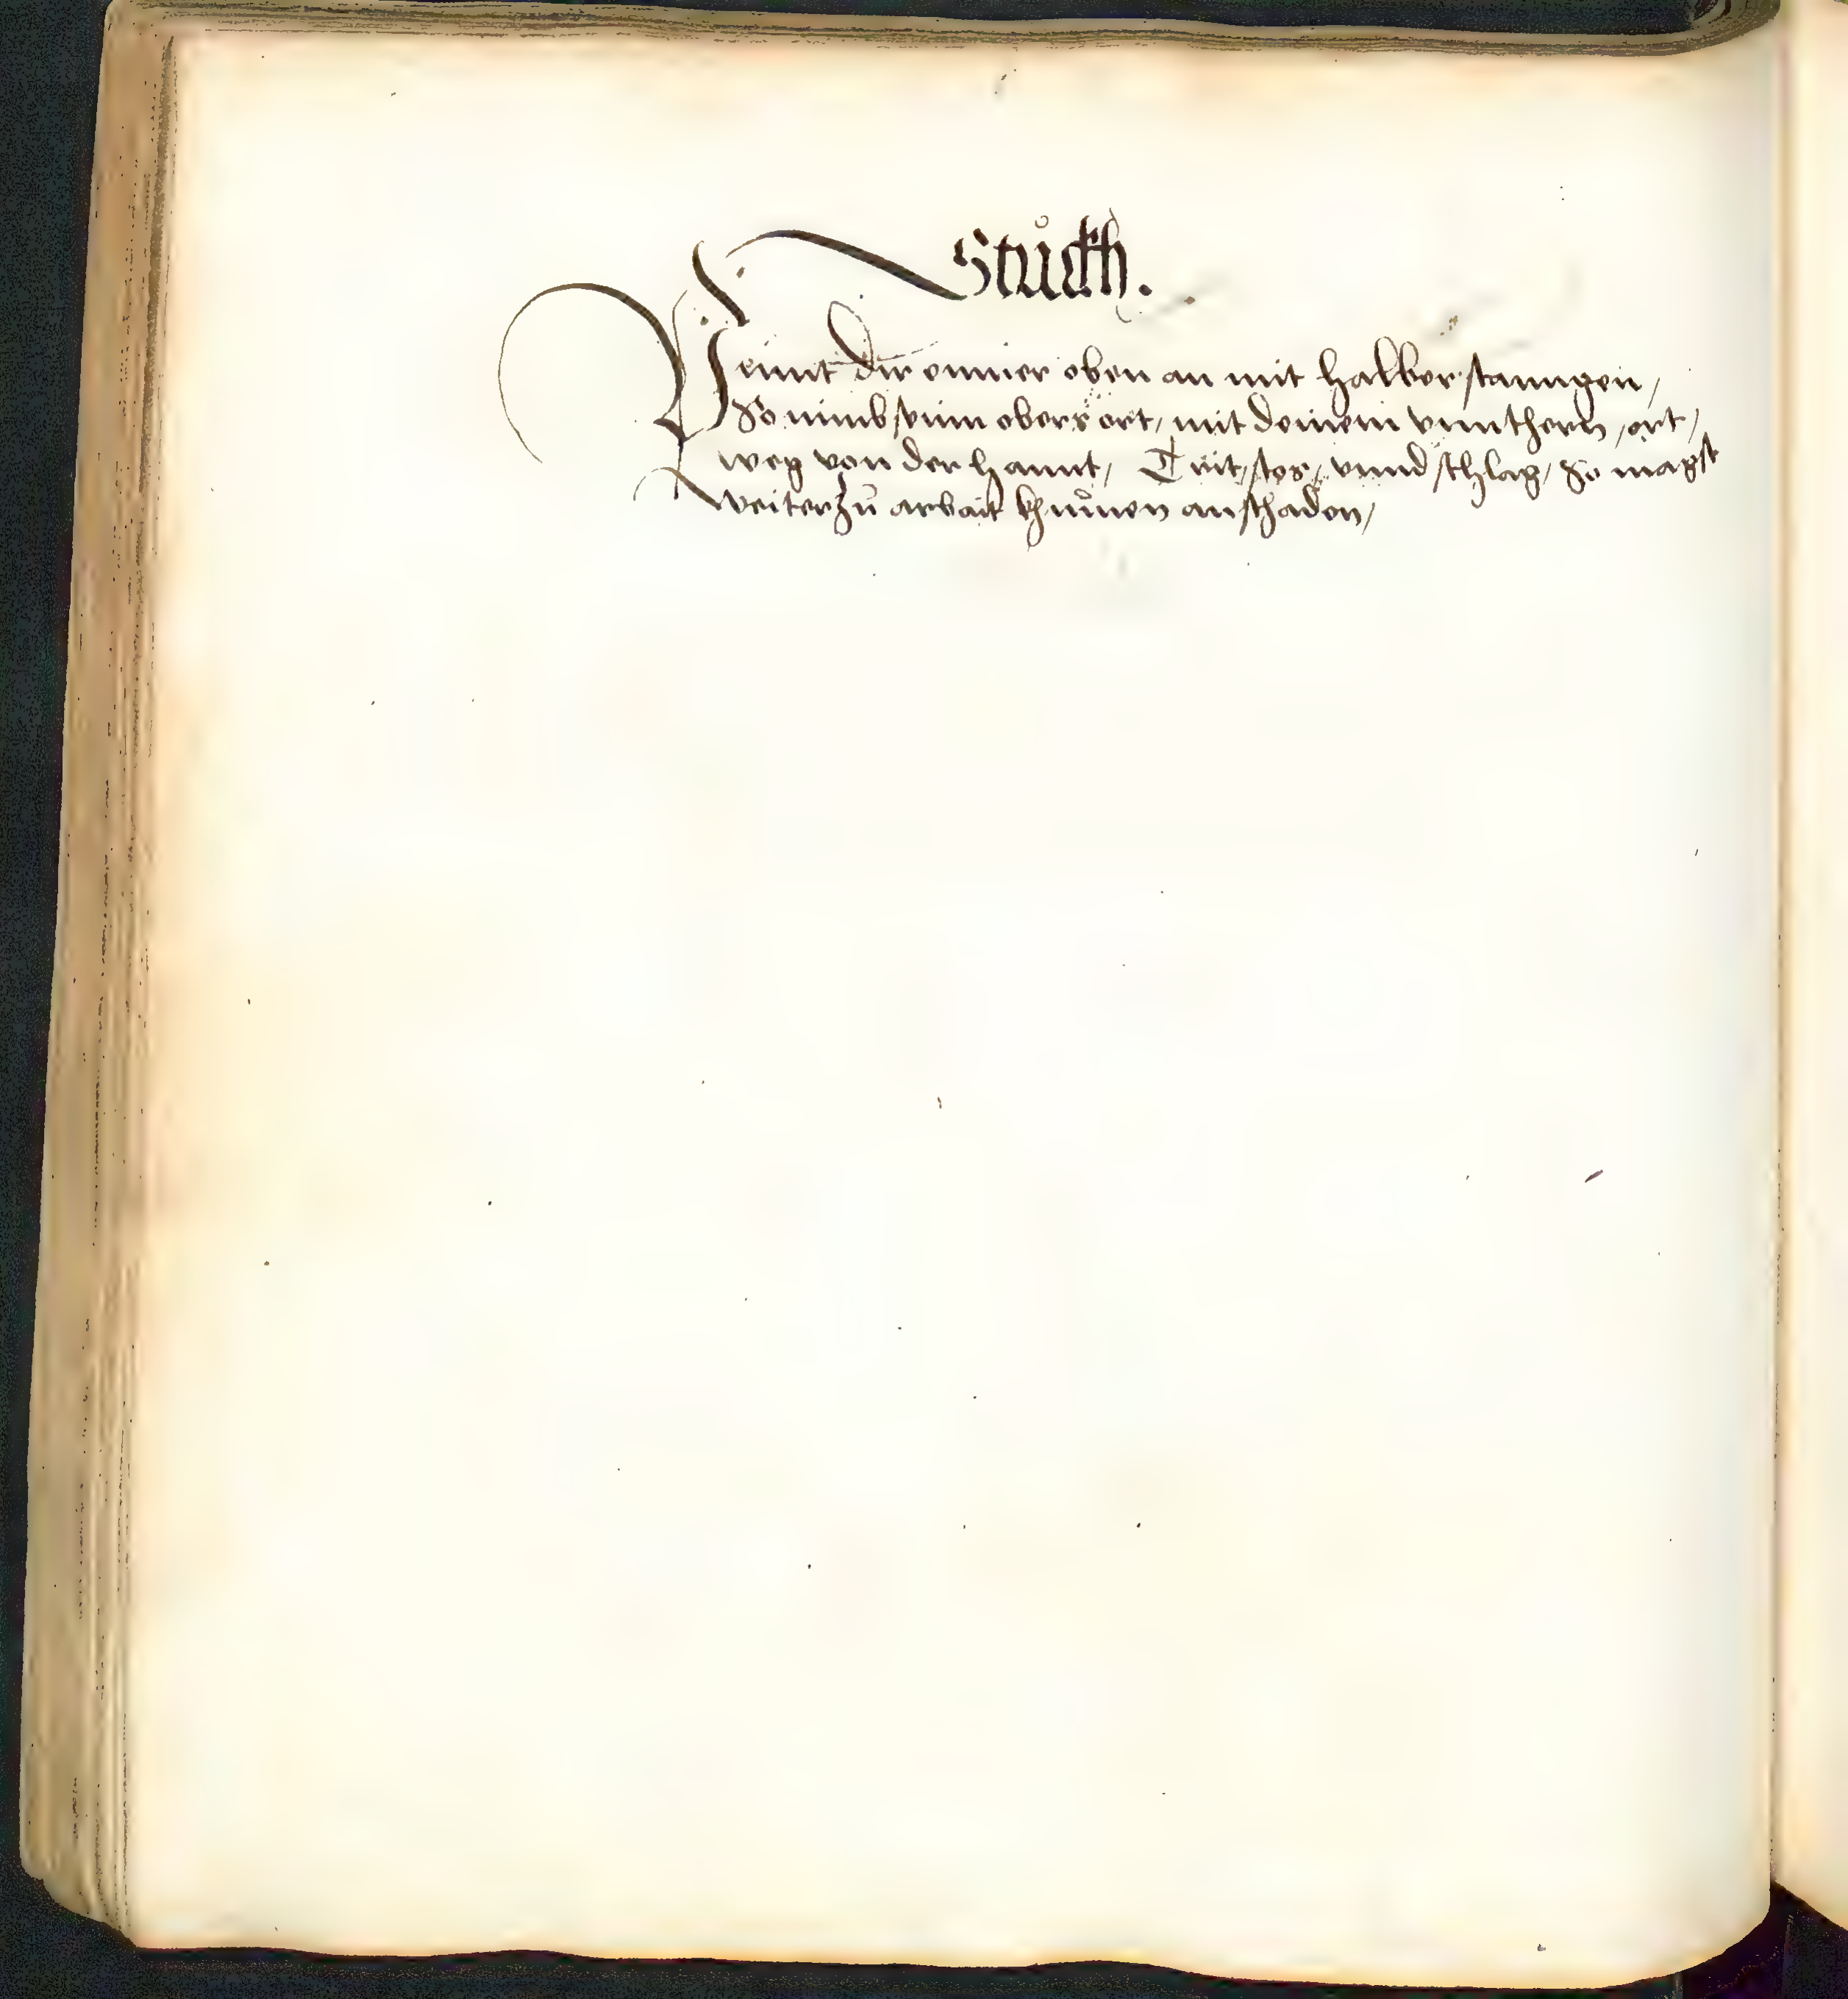 Stuͦckh.
Pinnt dir ennier oben an mit halber stanngen /
So nimb seinn obers ort / mit deinem vnnthern / ort /
weg von der hannt / Trit / stos / vnnd schlag / So magst
weiter zu arbait khuͦmen an schaden /